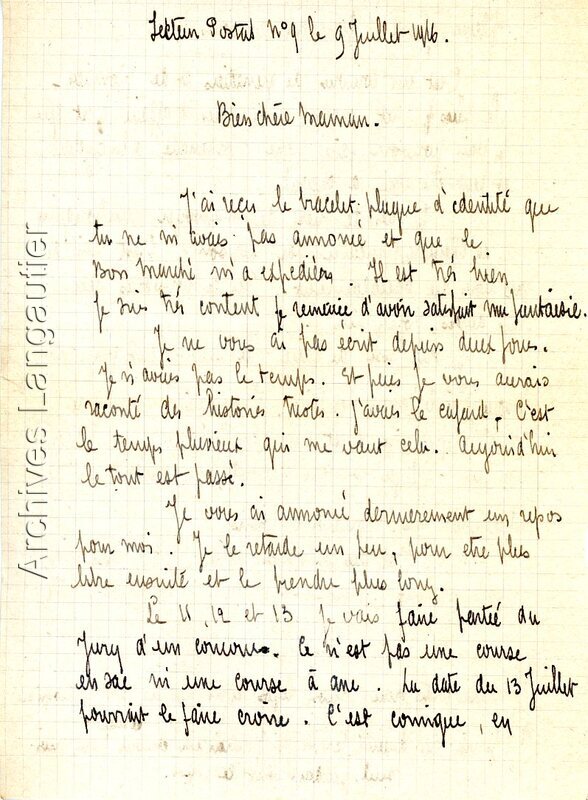 Secteur Postal n° 9 le 9 Juillet 1916.
Bien chère Maman.
J'ai reçu le bracelet plaque d'identité que
tu ne m'avais pas annoncé et que le
Bon Marché m'a expédiés. Il est très bien
je suis très content je remercie d'avoir satisfait ma fantaisie.
Je ne vous ai pas écrit depuis deux jours.
Je n'avais pas le temps. Et puis je vous aurais
raconté des histoires tristes. J'avais le cafard. C'est
le temps pluvieux qui me vaut cela. Aujourd'hui
le tout est passé.
Je vous ai annoncé dernièrement un repos
pour moi. Je le retarde un peu, pour etre plus
libre ensuite et le prendre plus long.
Le 11, 12 et 13 je vais faire partie du
Jury d'un concours. Ce n'est pas une course
en sac ni une course à ane. La date du 13 Juillet
pourrait le faire croire. C'est comique, en
Archives Langautier